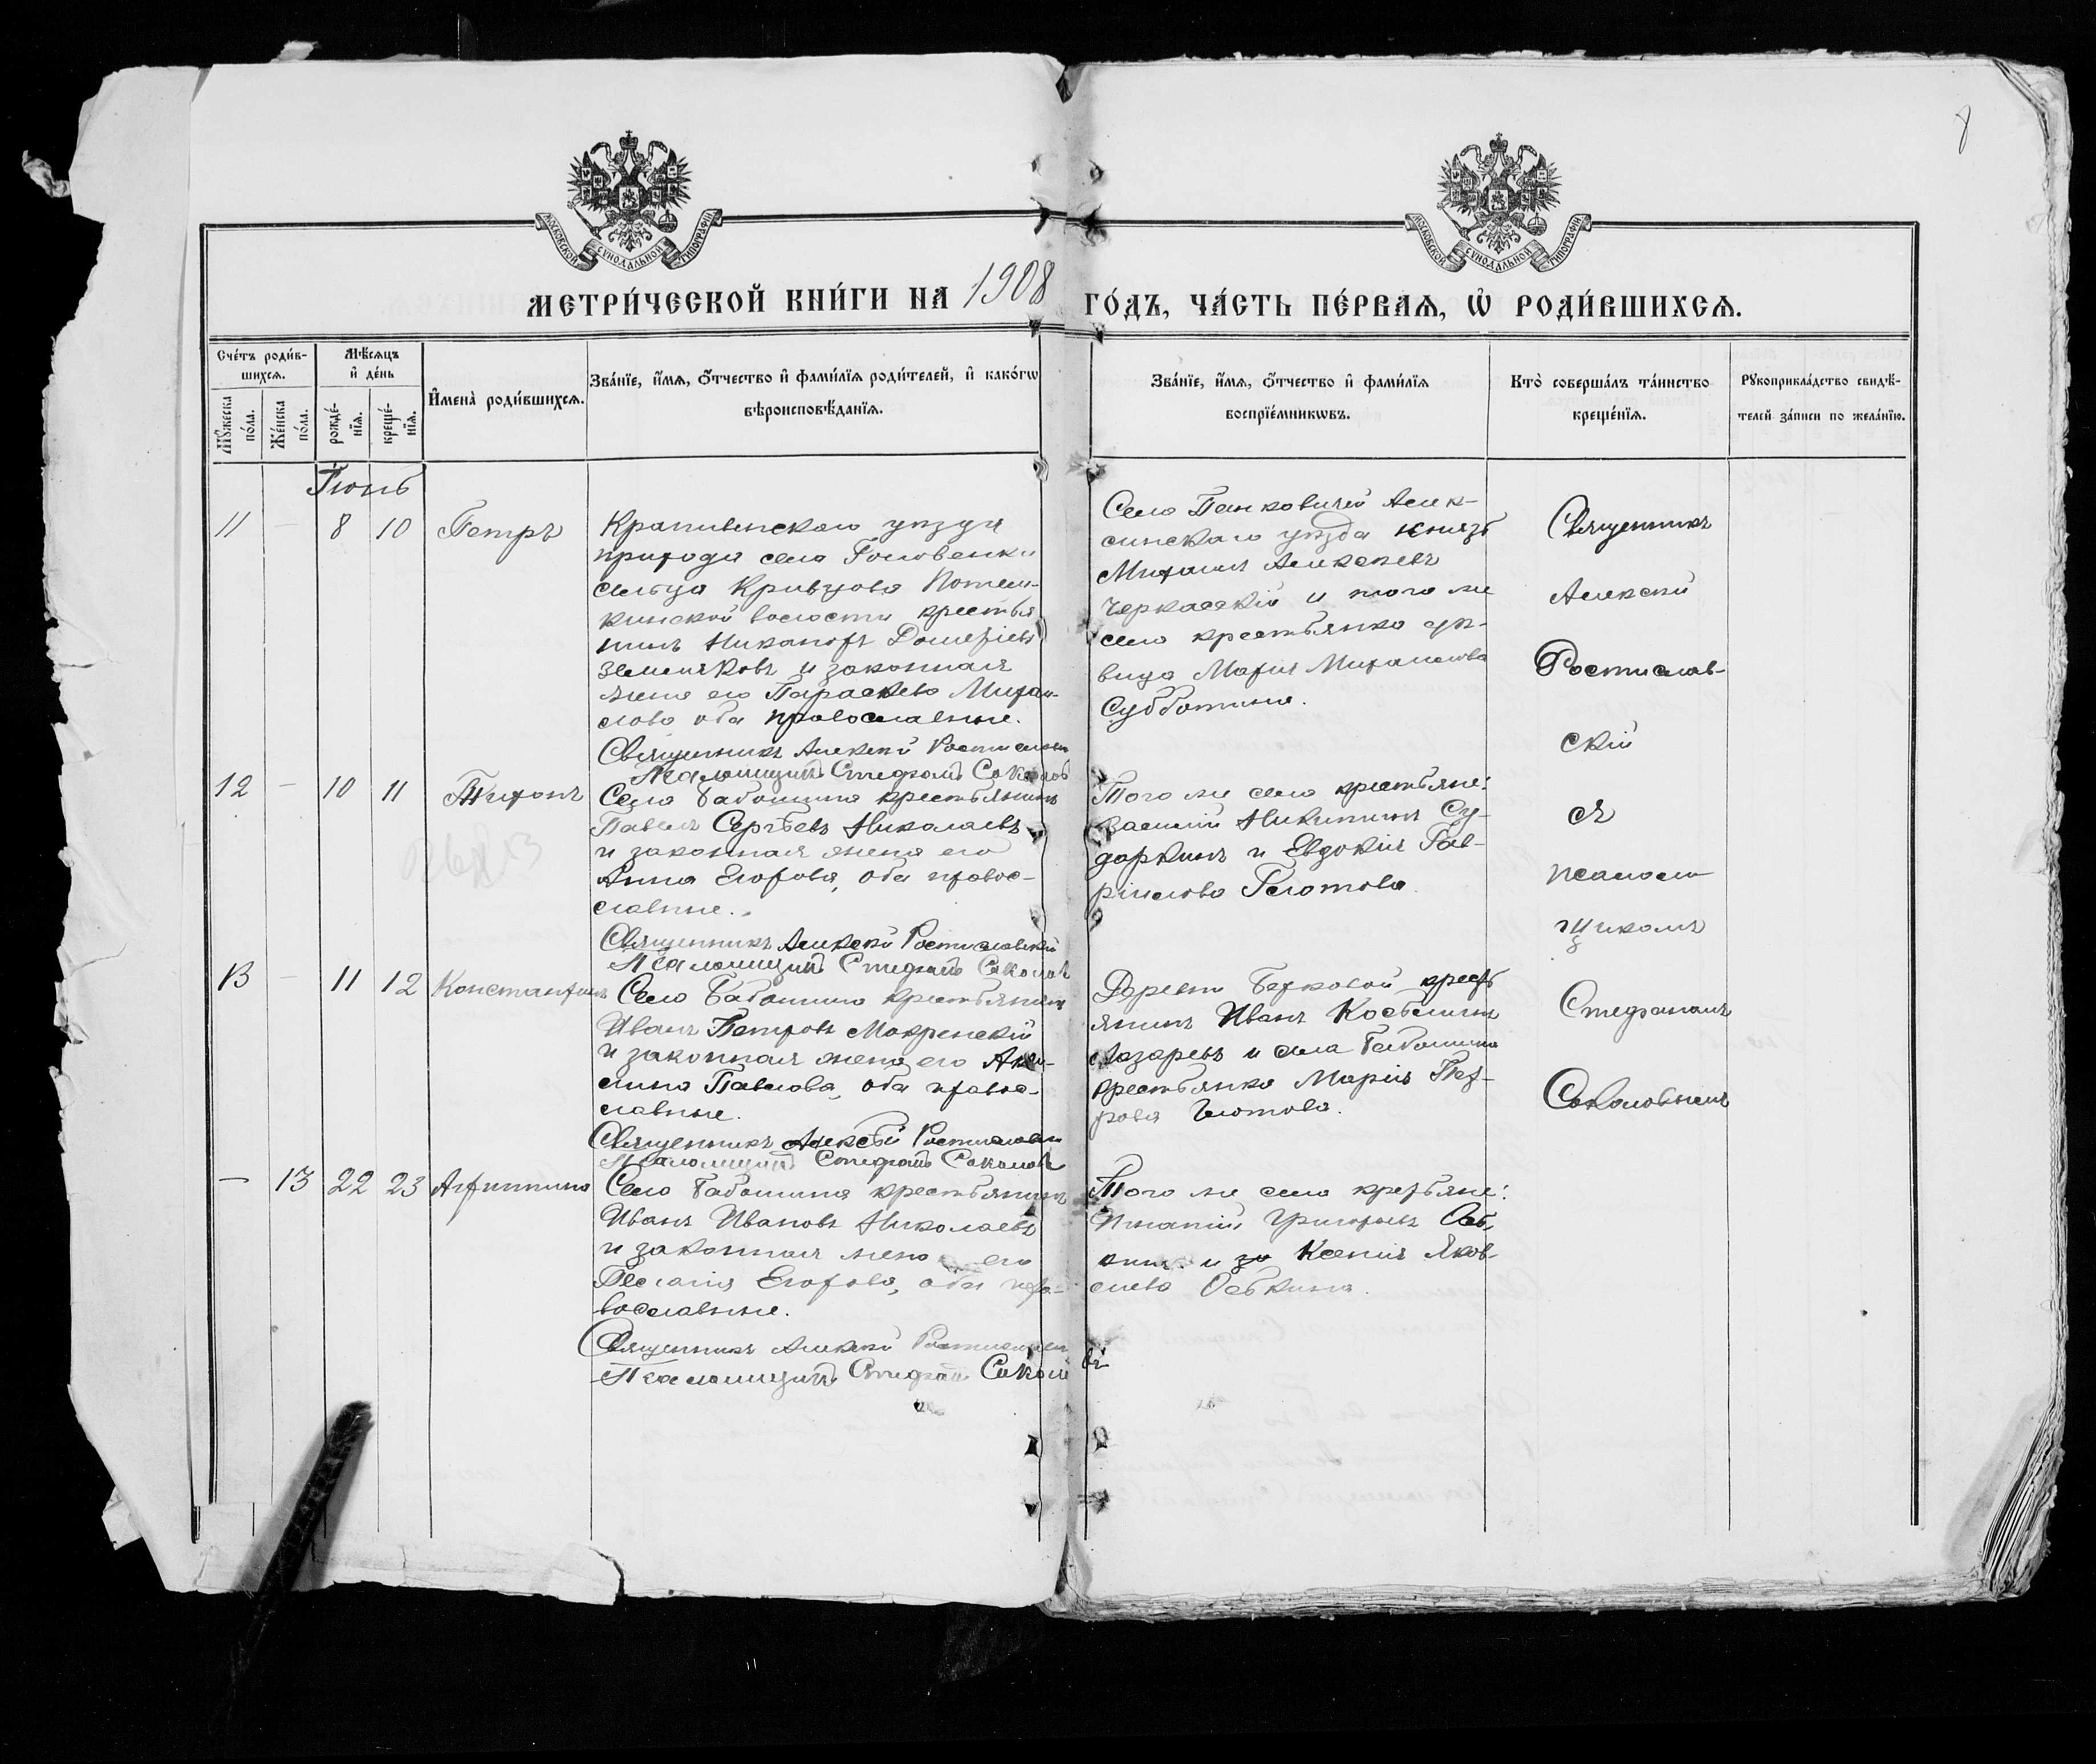 8
МОСКОВСКОЙ СѴНОДАЛЬНОЙ ТИПОГРАФІИ
МОСКОВСКОЙ СѴНОДАЛЬНОЙ ТИПОГРАФІИ
МЕТРИ́ЧЕСКОЙ КНИ́ГИ НА 1908 ГО́ДЪ, ЧА́СТЬ ПЕ́РВАѦ, Ѽ РОДИ́ВШИХСѦ.
Сче́тъ роди́в-
шихсѧ.
Мꙋ́жеска по́ла.
Же́нска по́ла.
Мѣ́сѧцъ и҆ де́нь
рожде́-
нїѧ.
креще́-
нїѧ.
И҆мена̀ роди́вшихсѧ.
Зва́нїе, и҆́мѧ, ѻ҆́тчество и҆ фами́лїѧ роди́телей, и҆ како́гѡ
вѣроисповѣ́данїѧ.
Зва́нїе, и҆́мѧ, ѻ҆́тчество и҆ фами́лїѧ
воспрїе́мникѡвъ.
Кто̀ соверша́лъ та́инство
креще́нїѧ.
Рꙋкоприкла́дство свидѣ́-
телей за́писи по жела́нїю.
Іюнь
11 - 8 10 Петръ
Крапивенскаго уѣзда
прихода села Головенки
сельца Кривцова Потем-
кинской волости крестья
нинъ Никаноръ
Земляковъ и законная
жена его Параскева Михаи-
лова оба православные.
Священникъ Алексѣй Ростислав
Псаломщикъ Стефанъ Соколов
Села Панковичей Алек-
синскаго уѣзда князь
Михаилъ Алексѣевъ
Черкасскій и того же
села крестьянка дѣ-
вица Марія Михаилова
Субботина.
12 - 10 11 Тихонъ
Села Бабошина крестьянинъ
Павелъ Сергѣевъ Николаевъ
и законная жена его
Анна Егорова, оба правос-
славные.
Священникъ Алексѣй Ростиславскій
Псаломщикъ Стефанъ Соколовъ
Того же села крестьяне:
Василій Никитинъ Су-
даркинъ и Евдокія Гав-
ріилова Глотова.
13 - 11 12 Константинъ
Села Бабошина крестьянинъ
Иванъ Петровъ Мокренскій
и законная жена его Аки-
лина Павлова, оба правос-
славные.
Священникъ Алексѣй Ростиславск
Псаломщикъ Стефанъ Соколовъ
Деревни кресть
янинъ Иванъ Косьминъ
Лазаревъ и села Бабошина
крестьянка Марія Пет-
рова Глотова.
- 13 22 23 Агрипина
Села Бабошина крестьянинъ
Иванъ Ивановъ Николаевъ
и законная жена его
Пелагія Егорова, оба пра-
вославные.
Священникъ Алексѣй Ростиславск
Псаломщикъ Стефанъ Соколовъ
Того же села крестьяне:
Игнатій Григорьевъ
и за Ксенія Яков-
лева
Священникъ
Алексѣй
Ростислав-
скій
съ
псалом
щикомъ
Стефаномъ
Соколовымъ